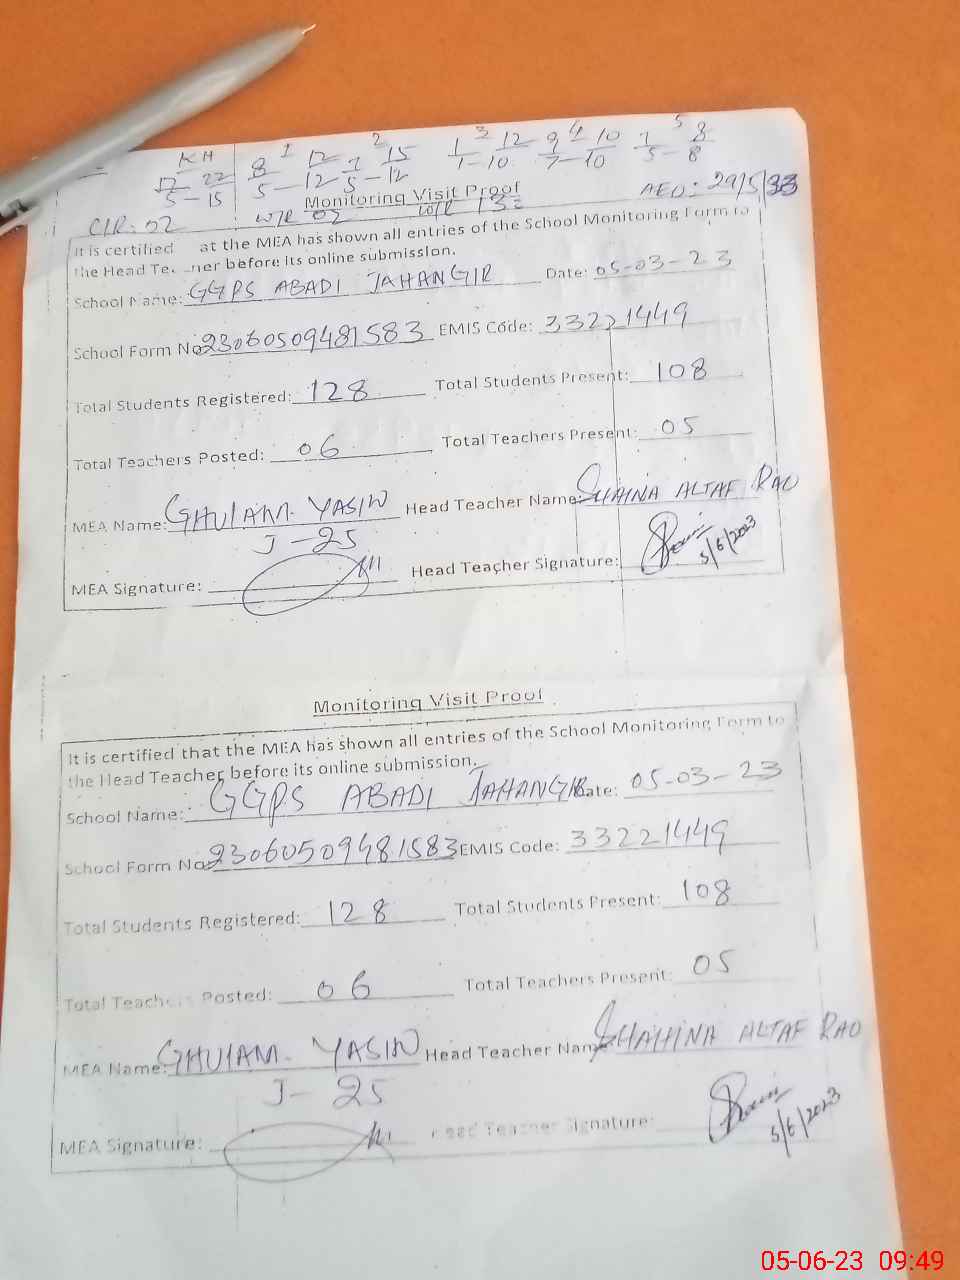 KH 1 2 3 4 5
17 22 8 12 7 15 1 12 9 10 7 8
5-15 5-12 5-12 1-10 7-10 5-8
Monitoring Visit Proof AEO: 29/5/
CIR: 02 W/R 02 W/R 132
It is certified at the MEA has shown all entries of the School Monitoring Form to
the Head Te. ..ner before its online submission.
School Name: GGPS ABADI JAHANGIR Date: 05-03-23
School Form No 23060509481583 EMIS Code: 33221449
Total Students Registered: 128 Total Students Present: 108
Total Teachers Posted: 06 Total Teachers Present: 05
MEA Name: GHULAM YASIN Head Teacher Name: SHAINA ALTAF RAO
J-25
MEA Signature: Head Teacher Signature: 5/6/2023
Monitoring Visit Proof
It is certified that the MEA has shown all entries of the School Monitoring Form to
the Head Teacher before its online submission.
School Name: GGPS ABADI JAHANGIR Date: 05-03-23
School Form No 23060509481583 EMIS Code: 33221449
Total Students Registered: 128 Total Students Present: 108
Total Teachers Posted: 06 Total Teachers Present: 05
MEA Name: GHULAM YASIN Head Teacher Name SHAHINA ALTAF RAO
J-25
MEA Signature: Head Teacher Signature: 5/6/2023
05-06-23 09:49